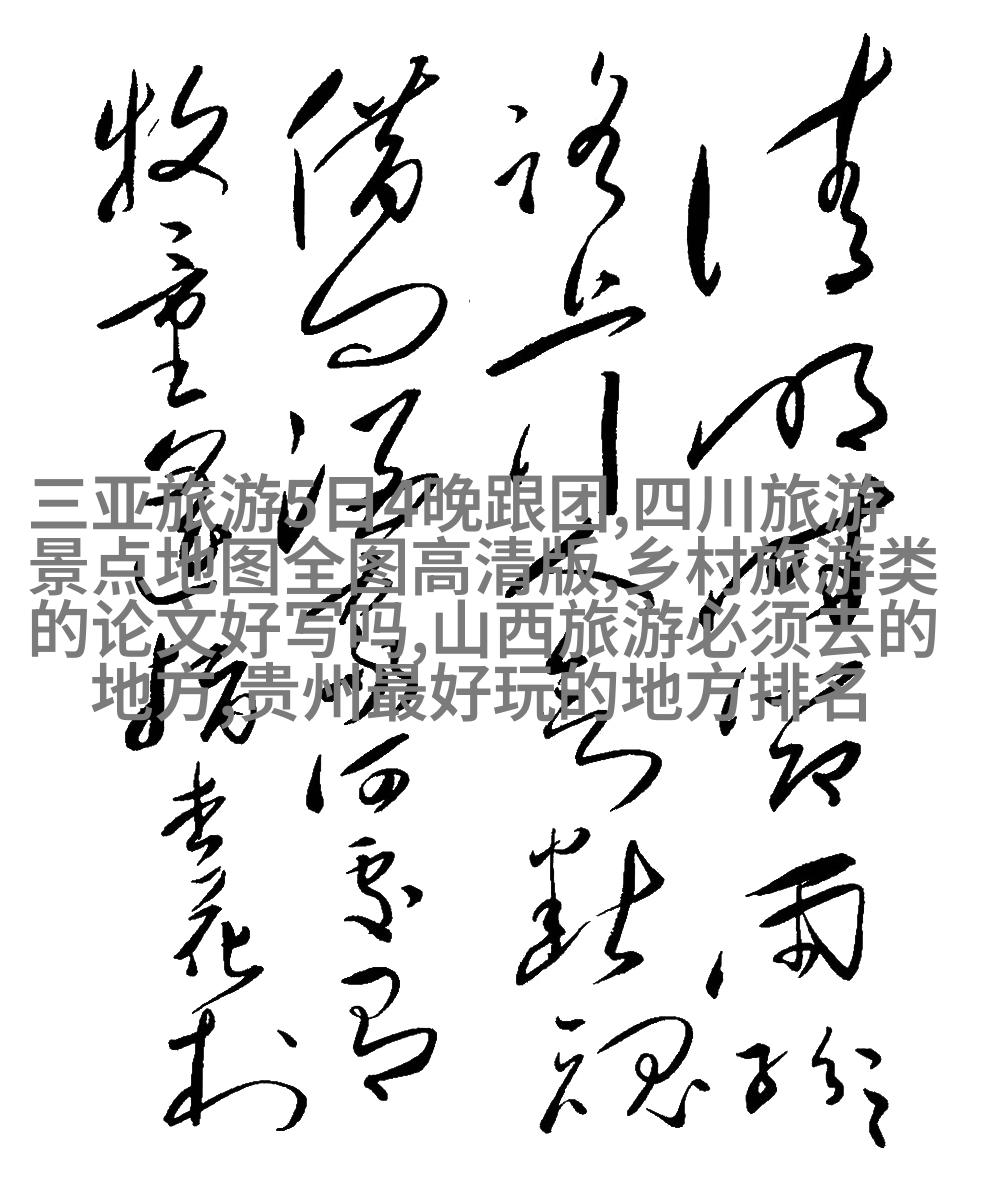 清明時節雨紛〻
路上行人欲斷魂
借問酒家何處有
牧童遙指杏花村
三亚旅游5日4晚跟团,四川旅游
景点地图全图高清版,乡村旅游类
的论文好写吗,山西旅游必须去的
地方,贵州最好玩的地方排名